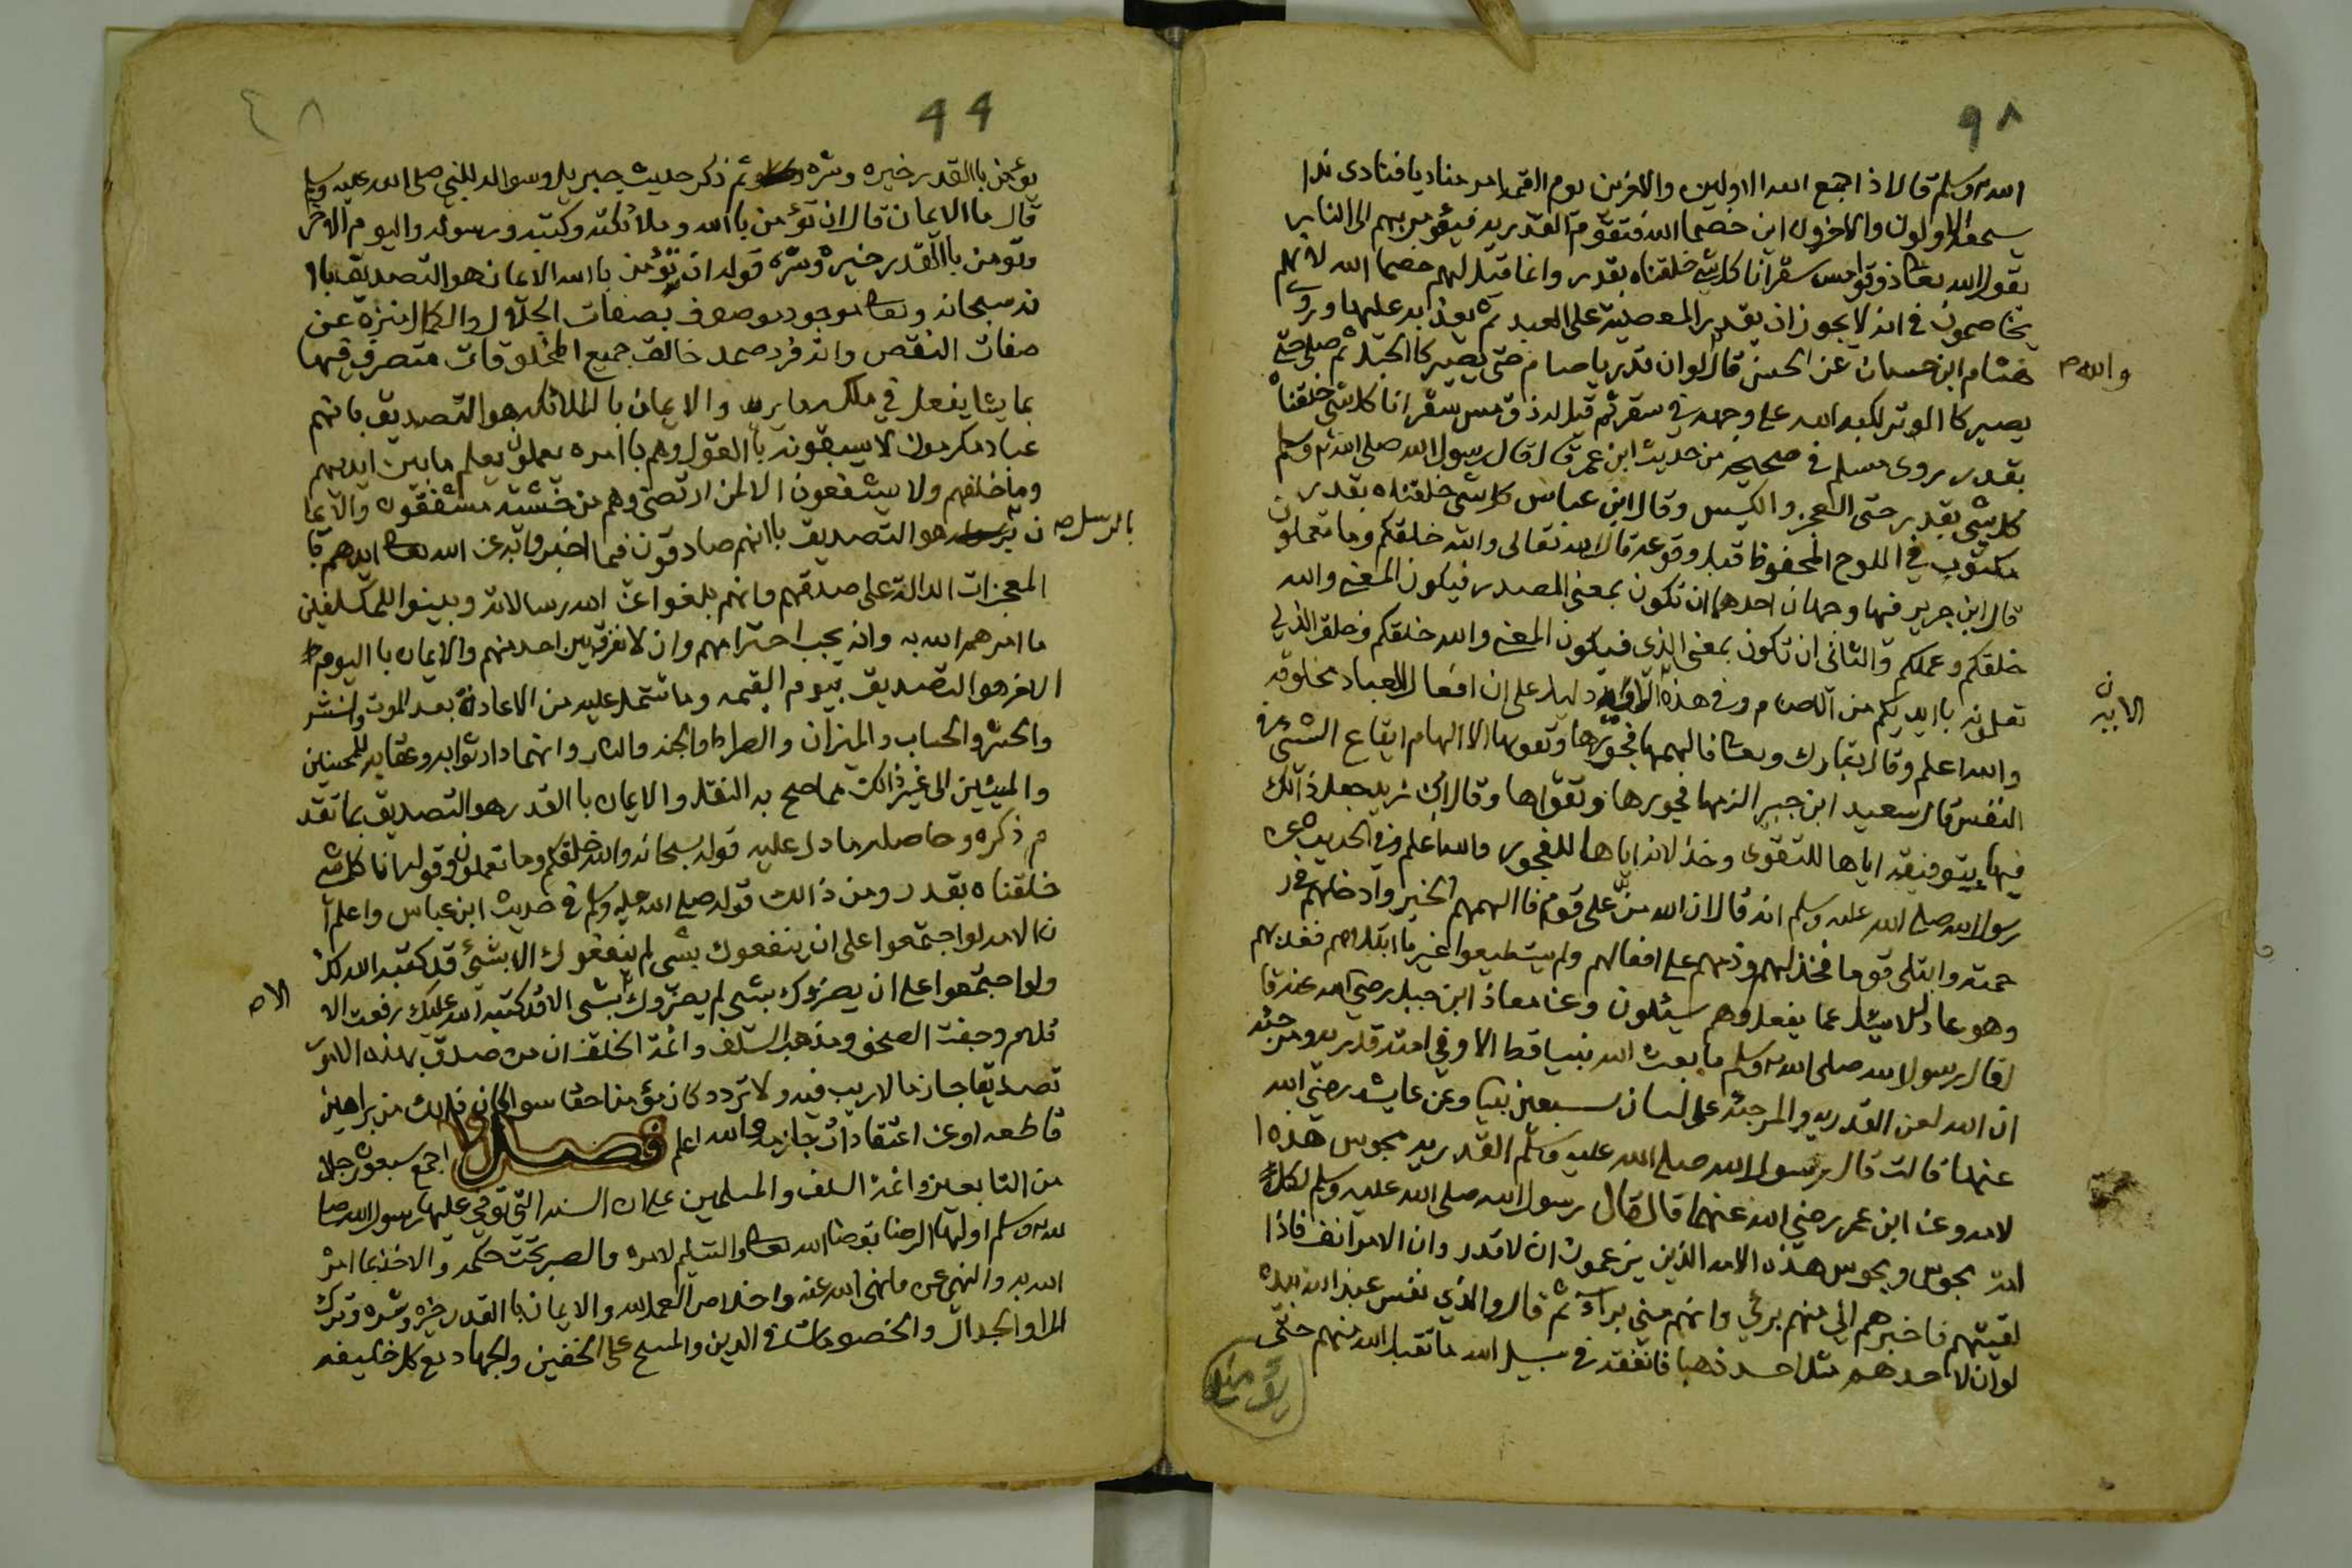 ٩٨
الله عليه وسلم قال اذا جمع الله الاولين والاخرين يوم القيمة امر مناديا فنادى ندا
يسمعه الاولون والاخرون اين خصما الله فتقوم القدرية فيؤمر بهم الى النار
يقول الله تعالى ذوقوا مس سقر انا كل شي خلقناه بقدر وانما قيل لهم خصما الله لانهم
يخاصمون في انه لا يجوز ان يقدر المعصية على العبد ثم يعذبه عليها وروى
هشام ابن حسان عن الحسن قال لو ان قدريا صام حتى يصير كالحبل ثم صلى حتى
والله
يصير كا الوتر لكبه الله على وجهه في سقر ثم قيل له ذق مس سقر انا كل شي خلقناه
بقدر روى مسلم في صحيحه من حديث ابن عمر قال قال رسول الله صلى الله عليه وسلم
كل شي بقدر حتى العجز والكيس وقال ابن عباس كل شي خلقناه بقدر
مكتوب في اللوح المحفوظ قبل وقوعه قال الله تعالى والله خلقكم وما تعملون
قال ابن جرير فيها وجهان احدهما ان تكون بمعنى المصدر فيكون المعنى والله
خلقكم وعملكم والثاني ان تكون بمعنى الذي فيكون المعنى والله خلقكم وخلق الذي
تعملونه بايديكم من الاصنام وفي هذه الاية دليل على ان افعال العباد مخلوقه
ن
الايه
والله اعلم وقال تبارك وتعالى فالهمها فجورها وتقوىها الالهام ايقاع الشي في
النفس قال سعيد ابن جبير الزمها فجورها وتقواها وقال ابن زيد جعل ذالك
فيها بتوفيقه اياها للتقوى وخذلانه اياها للفجور والله اعلم وفي الحديث عن
رسول الله صلى الله عليه وسلم انه قال ان الله من على قوم فا الهمهم الخير وادخلهم في ر
حمته وابتلى قوما فخذلهم وذمهم على افعالهم ولم يستطيعوا غير ما ابتلاهم فعذبهم
وهو عادل لا يسئل عما يفعل وهم يسئلون وعن معاذ ابن جبل رضي الله عنه قا
ل قال رسول الله صلى الله عليه وسلم ما بعث الله نبيا قط الا وفي امته قدريه ومرجئه
ان الله لعن القدريه والمرجئه على لسان سبعين نبيا وعن عايشه رضي الله
عنها قالت قال رسول الله صلى الله عليه وسلم القدريه مجوس هذه ا
لامه وعن ابن عمر رضي الله عنهما قال قال رسول الله صلى الله عليه وسلم لكل
امة مجوس ومجوس هذه الامه الذين يزعمون ان لا قدر وان الامر انف فاذا
لقيتهم فاخبرهم اني منهم بري وانهم مني برآء ثم قال والذي نفس عبد الله بيده
لو ان لاحدهم مثل احد ذهبا فانفقه في سبيل الله ما تقبل الله منهم حتى
يؤمنو
99
٤٨
يؤمن باالقدر خيره وشره ثم ذكر حديث جبريل وسواله للنبي صلى الله عليه وسلم
قال ما الايمان قال ان تؤمن باالله وملائكته وكتبه ورسوله واليوم الاخر
وتؤمن باالقدر خيره وشره قوله ان تؤمن باالله الايمان هو التصديق با
نه سبحانه وتعالى موجود موصوف بصفات الجلال والكمال منزه عن
صفات النقص وانه فرد صمد خالق جميع المخلوقات متصرف فيها
بما يشا يفعل في ملكه ما يريد والايمان با الملائكه هو التصديق بانهم
عباد مكرمون لا يسبقونه باالقول وهم باامره يعملون يعلم ما بين ايديهم
وما خلفهم ولا يشفعون الا لمن ارتضى وهم من خشيته مشفقون والايما
ن هو التصديق باانهم صادقون فيما اخبروا به عن الله تعالى ايدهم با
بالرسل
المعجزات الدالة على صدقهم وانهم بلغوا عن الله رسالاته وبينوا للمكلفين
ما امرهم الله به وانه يجب احترامهم وان لا نفرق بين احد منهم والايمان با اليوم
الاخر هو التصديق بيوم القيمه وما شتمل عليه من الاعادة بعد الموت والنشر
والحشر والحساب والميزان والصراط والجنه والنار وانهما دار ثوابه وعقابه للمحسنين
والمسيئين الى غير ذالك مما صح به النقل والايمان با القدر هو التصديق بما تقد
م ذكره وحاصله ما دل عليه قوله سبحانه والله خلقكم وما تعملون وقوله انا كل شي
خلقناه بقدر ومن ذالك قوله صلى الله عليه وسلم في حديث ابن عباس واعلم ا
ن الامه لو اجتمعوا على ان ينفعوك بشي لم ينفعوك الا بشئ قد كتبه الله لك
ولو اجتمعوا على ان يضروك بشي لم يضروك بشي الا قد كتبه الله عليك رفعت الا
الا
قلام وجفت الصحف ومذهب السلف وائمة الخلف ان من صدق بهذه الامور
تصديقا جازما لا ريب فيه ولا تردد كان مؤمنا حقا سوا كان ذلك من براهين
قاطعه او عن اعتقادات جازمه والله اعلم فصل اجمع سبعون رجلا
من التابعين وائمة السلف والمسلمين على ان السنه التي توفي عليها رسول الله صلى ا
لله عليه وسلم اولها الرضا بقضا الله تعالى والتسليم لامره والصبر تحت حكمه والاخذ بما امر
الله به والنهي عن ما نهى الله عنه واخلاص العمل لله والايمان با القدر خيره وشره وترك
المرا والجدال والخصومات في الدين والمسح على الخفين والجهاد مع كل خليفه